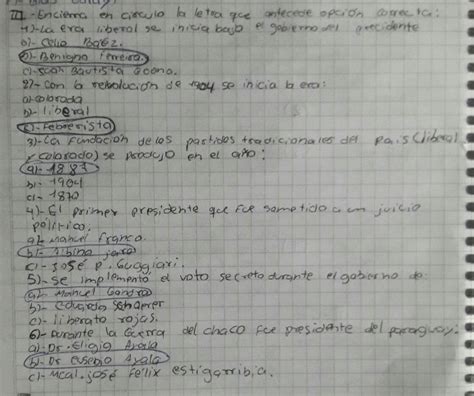 III.- Encierra en circulo la letra que antecede opción correcta:
1)- La era liberal se inicia bajo el gobierno del presidente
a)- Celio Baéz.
b)- Benigno Ferreira.
c)- Juan Bautista
2)- Con la rebolucion de 1904 se inicia la era:
a)- colorada
b)- liberal
c)- Febrerista
3)- La Fundación de los partidos tradicionales del Pais (liberal
y colorado) se produjo en el año:
a)- 1887
b)- 1904
c)- 1870
4)- El primer presidente que fue sometido a un juicio
politico:
a)- Manuel Franco.
b)- Albino jara
c)- José P. Guggiari.
5)- Se implemento el voto secreto durante el gobierno de:
a)- Manuel Gondra
b)- Eduardo Schaerer
c)- liberato rojas.
6)- Durante la Guerra del chaco fue presidente del paraguay:
a)- Dr. Eligio Ayala
b)- Dr Eusebio Ayala
c)- Mcal. josé Félix estigarribia.